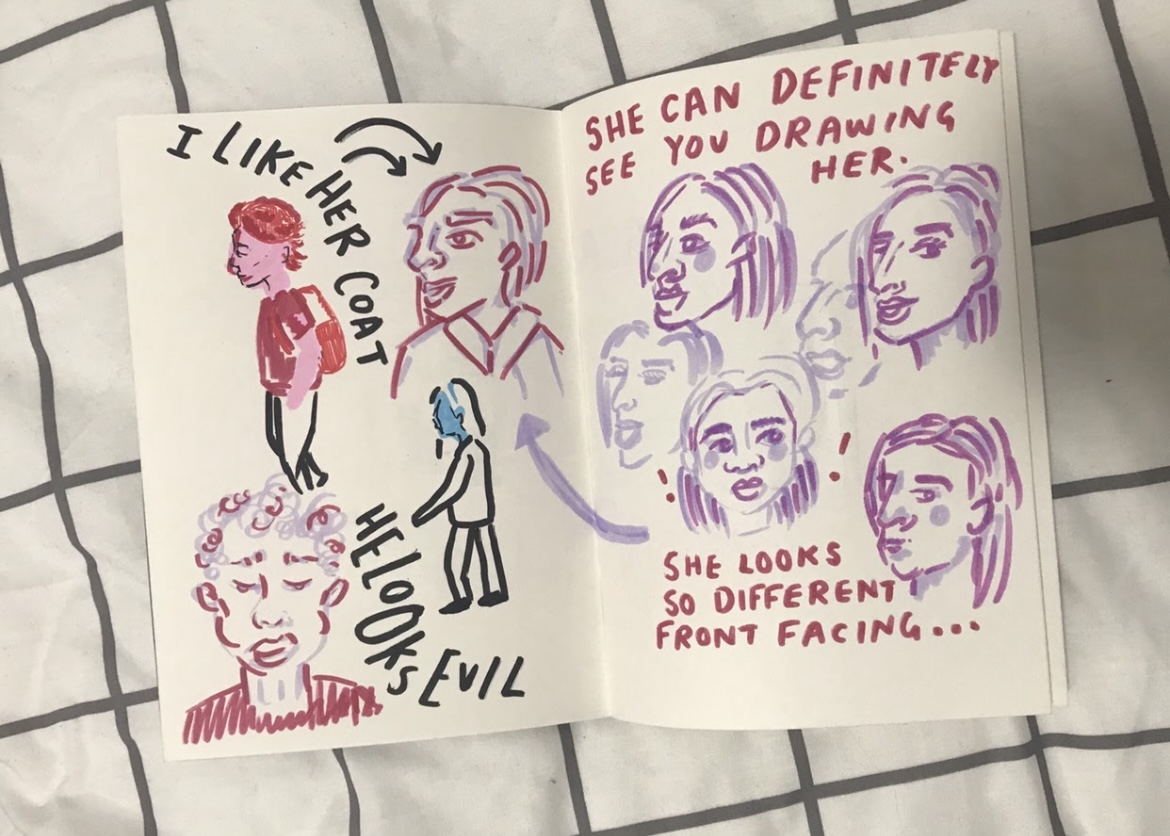 I LIKE HER COAT
HE LOOKS EVIL
SHE CAN DEFINITELY
SEE YOU DRAWING
HER.
! !
SHE LOOKS
SO DIFFERENT
FRONT FACING...